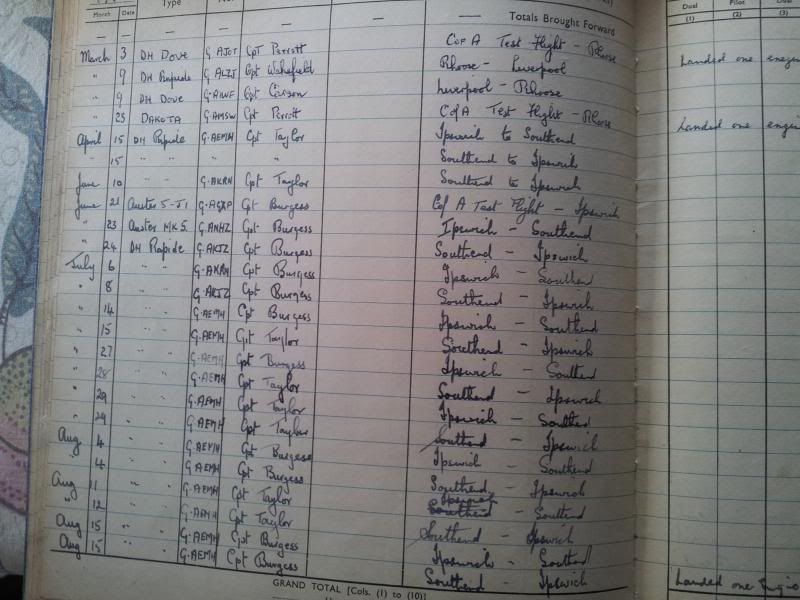 Month Date Type
Totals Brought Forward
Dual Pilot Dual
(1) (2) (3)
— — — — — —
March 3 DH Dove G-AJOT Cpt Perrott — C of A Test Flight - Rhoose Landed one engine
" 9 DH Rapide G-ALZJ Cpt Wakefield Rhoose - Liverpool
" 9 DH Dove Cpt Carson Liverpool - Rhoose
" 23 DAKOTA G-AMSW Cpt Perrott C of A Test Flight - Rhoose Landed one engine
April 15 DH Rapide G-AEMH Cpt Taylor Ipswich to Southend
" 15 " " " Southend to Ipswich
June 10 G-AKRN Cpt Taylor Southend to Ipswich
June 21 Auster 5-J1 Cpt Burgess C of A Test Flight - Ipswich
" 23 Auster MK5 G-ANHZ Cpt Burgess Ipswich - Southend
" 24 DH Rapide G-AKJZ Cpt Burgess Southend - Ipswich
July 6 " " G-AKRN Cpt Burgess Ipswich - Southend
" 8 " " G-AKJZ Cpt Burgess Southend - Ipswich
" 14 " " G-AEMH Cpt Burgess Ipswich - Southend
" 15 " " G-AEMH Cpt Taylor Southend - Ipswich
" 27 " " G-AEMH Cpt Burgess Ipswich - Southend
" 28 " " G-AEMH Cpt Taylor Southend - Ipswich
" 29 " " G-AEMH Cpt Taylor Ipswich - Southend
" 29 " " G-AEMH Cpt Taylor Southend - Ipswich
Aug 4 " " G-AEMH Cpt Burgess Ipswich - Southend
" 4 " " G-AEMH Cpt Burgess Southend - Ipswich
Aug 11 " " G-AEMH Cpt Taylor Ipswich - Southend
" 12 " " G-AEMH Cpt Taylor Southend - Ipswich
Aug 15 " " G-AEMH Cpt Burgess Ipswich - Southend
Aug 15 " " G-AEMH Cpt Burgess Southend - Ipswich Landed one engine
GRAND TOTAL [Cols. (1) to (10)]